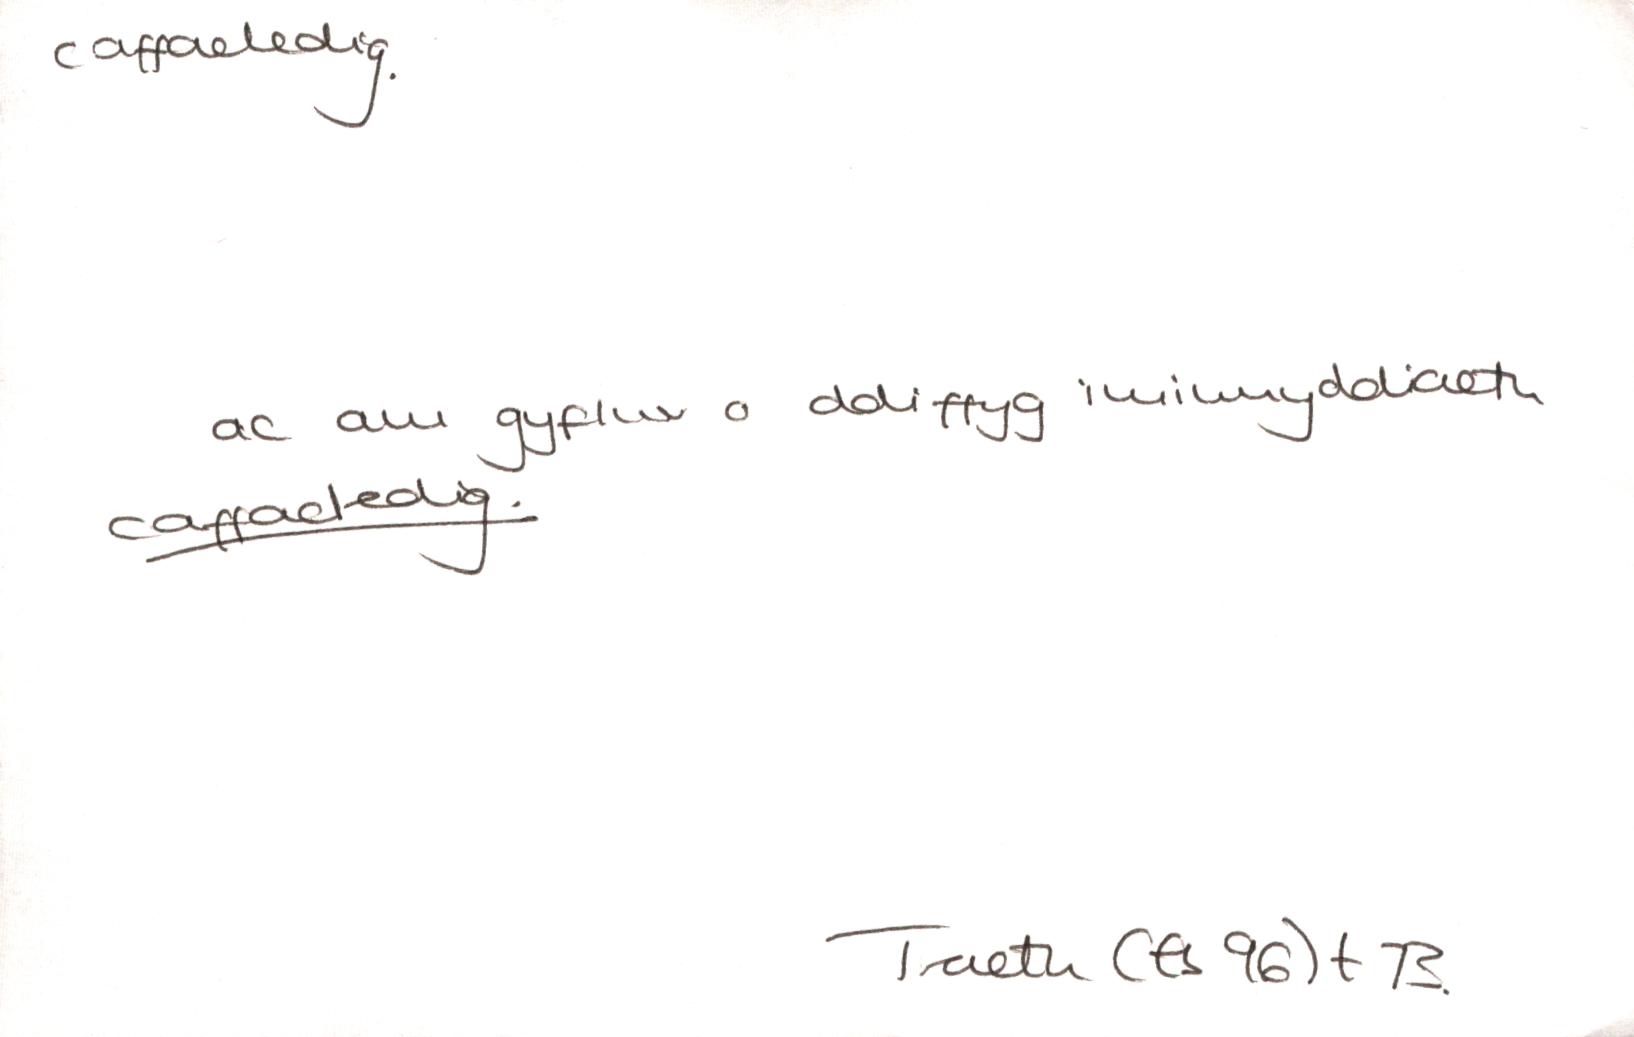 caffaeledig.
ac am gyflwr o ddiffyg imiwnyddiaeth
caffaeledig.
Traeth (Es 96) t 73.